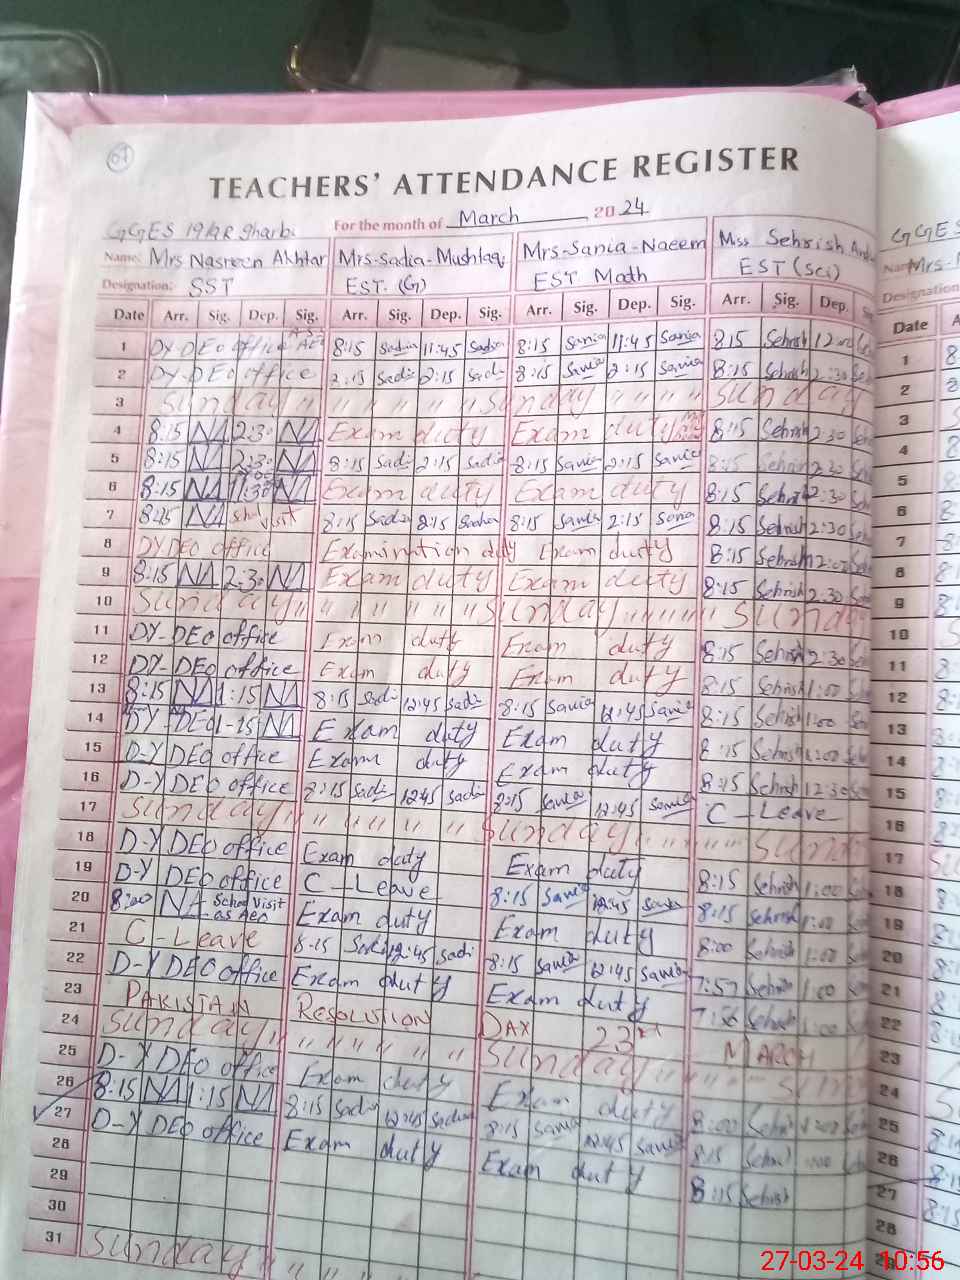 67
TEACHERS' ATTENDANCE REGISTER
GGES 19/GR Gharbi For the month of March 2024
Name: Mrs Nasreen Akhtar Mrs-Sadia-Mushtaq Mrs-Sania-Naeem Miss Sehrish
Designation: SST EST (G) EST Math EST (Sci)
Date Arr. Sig. Dep. Sig. Arr. Sig. Dep. Sig. Arr. Sig. Dep. Sig. Arr. Sig. Dep.
1 DY-DEO office 8:15 Sadia 11:45 Sadia 8:15 Sania 11:45 Sania 8:15 Sehrish 12:00
2 DY-DEO office 2:15 Sadia 8:15 Sania 2:15 Sania 8:15 Sehrish 2:30
3 Sunday " " " " " Sunday " " " " Sunday
4 8:15 NA 2:30 NA Exam duty Exam duty 8:15 Sehrish 2:30
5 8:15 NA 2:30 NA 8:15 Sadia 2:15 Sadia 8:15 Sania 2:15 Sania 8:15 Sehrish 2:30
6 8:15 NA 11:30 NA Exam duty Exam duty 8:15 Sehrish 2:30
7 8:15 NA visit 8:15 Sadia 2:15 8:15 Sania 2:15 Sania 8:15 Sehrish 2:30
8 DY DEO office Examination duty Exam duty 8:15 Sehrish 12:00
9 8:15 NA 2:30 NA Exam duty Exam duty 8:15 Sehrish 2:30
10 Sunday " " " " " " Sunday " " " " Sunday
11 DY-DEO office Exam duty Exam duty 8:15 Sehrish 2:30
12 DY-DEO office Exam duty Exam duty 8:15 Sehrish 1:00
13 8:15 NA 1:15 NA 8:15 Sadia 12:45 Sadia 8:15 Sania 12:45 Sania 8:15 Sehrish 1:00
14 DY-DEO 1-15 NA Exam duty Exam duty 8:15 Sehrish
15 D-Y DEO office Exam duty Exam duty 8:15 Sehrish 12:30
16 D-Y DEO office 8:15 Sadia 12:45 Sadia 8:15 Sania 12:45 Sania C-Leave
17 Sunday " " " " " Sunday " " " " Sunday
18 D-Y DEO office Exam duty Exam duty 8:15 Sehrish 1:00
19 D-Y DEO office C-Leave 8:15 Sania 12:45 Sania 8:15 Sehrish 1:00
20 8:00 NA School Visit as AEO Exam duty Exam duty 8:00 Sehrish 1:00
21 C-Leave 8-15 Sadia 12:45 Sadia 8:15 Sania 12:45 Sania 7:57 Sehrish 1:00
22 D-Y DEO office Exam duty Exam duty 7:56 Sehrish 1:00
23 PAKISTAN RESOLUTION DAY 23rd MARCH
24 Sunday " " " " " Sunday " " " " Sun
25 D-Y DEO office Exam duty Exam duty 8:00 Sehrish
26 8:15 NA 1:15 NA 8:15 Sadia 12:45 Sadia 8:15 Sania 12:45 Sania 8:15
27 D-Y DEO office Exam duty Exam duty 8:15 Sehrish
28
29
30
31 Sunday " " " " "
GGES
Name: Mrs
Designation
Date
1
2
3
4
5
6
7
8
9
10
11
12
13
14
15
16
17
18
19
20
21
22
23
24
25
26
27
28
27-03-24 10:56